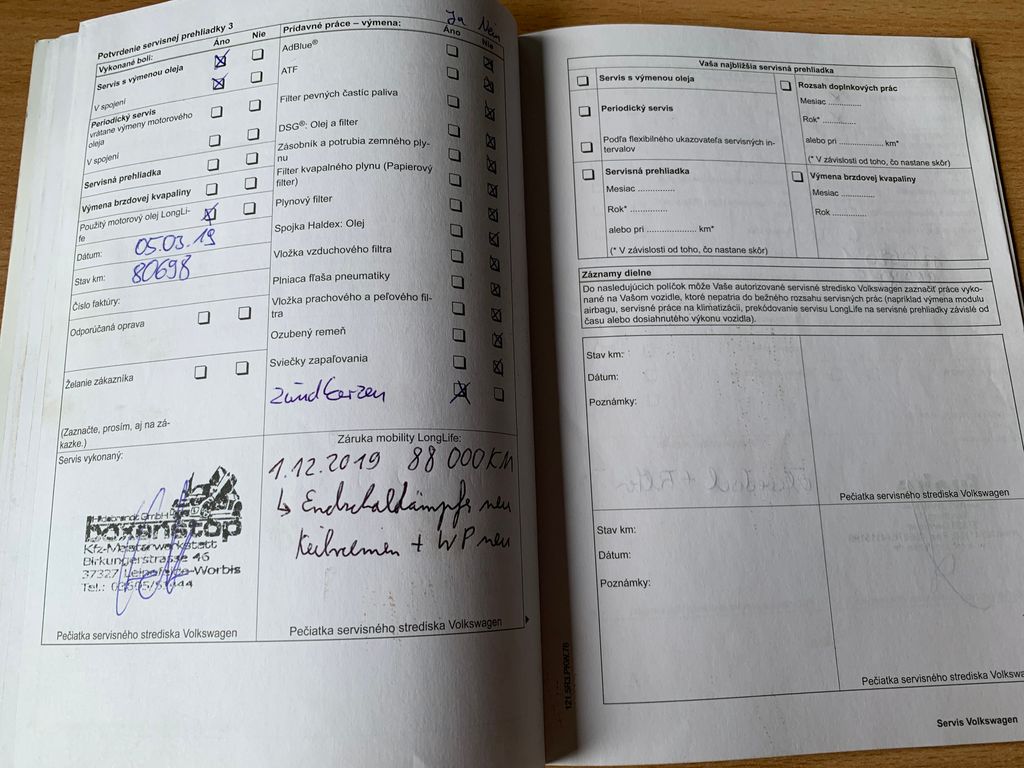 Potvrdenie servisnej prehliadky 3
Vykonané boli:
Áno
Nie
Servis s výmenou oleja
V spojení
Periodický servis
vrátane výmeny motorového
oleja
V spojení
Servisná prehliadka
Výmena brzdovej kvapaliny
Použitý motorový olej LongLi-
fe
Dátum:
05.03.19
Stav km:
80698
Číslo faktúry:
Odporúčaná oprava
Želanie zákazníka
(Zaznačte, prosím, aj na zá-
kazke.)
Ja Nein
Prídavné práce – výmena:
Áno
Nie
AdBlue®
ATF
Filter pevných častíc paliva
DSG®: Olej a filter
Zásobník a potrubia zemného ply-
nu
Filter kvapalného plynu (Papierový
filter)
Plynový filter
Spojka Haldex: Olej
Vložka vzduchového filtra
Plniaca fľaša pneumatiky
Vložka prachového a peľového fil-
tra
Ozubený remeň
Sviečky zapaľovania
Zündkerzen
Servis vykonaný:
Hildebrandt GmbH
boxenstop
Kfz-Meisterwerkstatt
Birkungerstrasse 46
37327 Leinefelde-Worbis
Pečiatka servisného strediska Volkswagen
Záruka mobility LongLife:
1.12.2019 88 000 KM
↳ Endschaldämpfe neu
Keilriemen + WP neu
Pečiatka servisného strediska Volkswagen
Vaša najbližšia servisná prehliadka
Servis s výmenou oleja
Periodický servis
Podľa flexibilného ukazovateľa servisných in-
tervalov
Servisná prehliadka
Mesiac ...............
Rok* ...............
alebo pri .................... km*
(* V závislosti od toho, čo nastane skôr)
Rozsah doplnkových prác
Mesiac .............
Rok* .............
alebo pri .................... km*
(* V závislosti od toho, čo nastane skôr)
Výmena brzdovej kvapaliny
Mesiac .............
Rok .............
Záznamy dielne
Do nasledujúcich políčok môže Vaše autorizované servisné stredisko Volkswagen zaznačiť práce vyko-
nané na Vašom vozidle, ktoré nepatria do bežného rozsahu servisných prác (napríklad výmena modulu
airbagu, servisné práce na klimatizácii, prekódovanie servisu LongLife na servisné prehliadky závislé od
času alebo dosiahnutého výkonu vozidla).
Stav km:
Dátum:
Poznámky:
Pečiatka servisného strediska Volkswagen
Stav km:
Dátum:
Poznámky:
Pečiatka servisného strediska Volkswagen
121.5R3.PKW.78
Servis Volkswagen